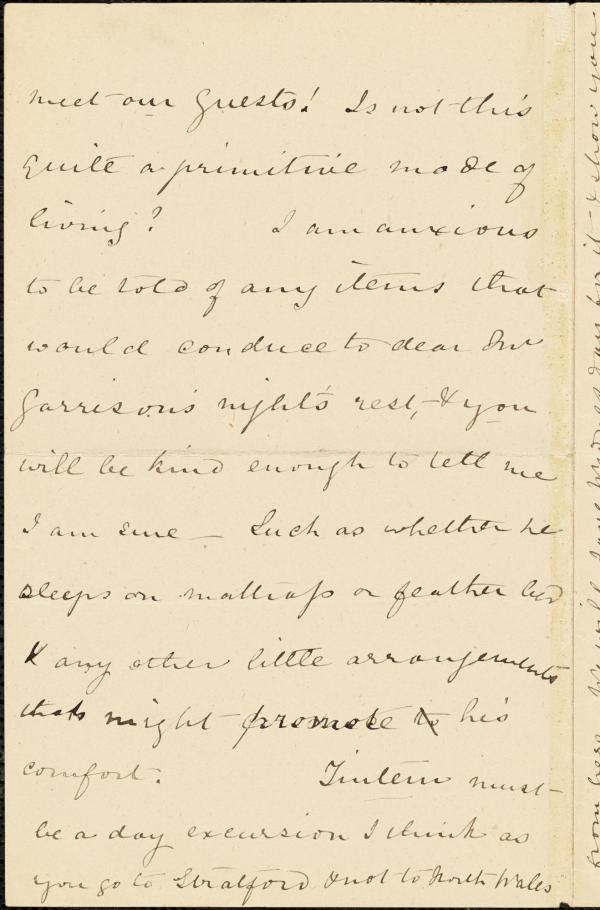 meet our guests! Is not this
quite a primitive mode of
living? I am anxious
to be told of any items that
would conduce to dear Mr
Garrison's night's rest, & you
will be kind enough to tell me
I am sure — Such as whether he
sleeps on mattrass or feather bed
& any other little arrangements
that might promote to his
comfort. Tintern must
be a day excursion I think as
you go to Stratford & not to North Wales
from here. We will have
day for it & show you